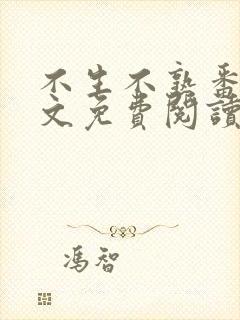 不生不熟番
文免費閱讀
馮智